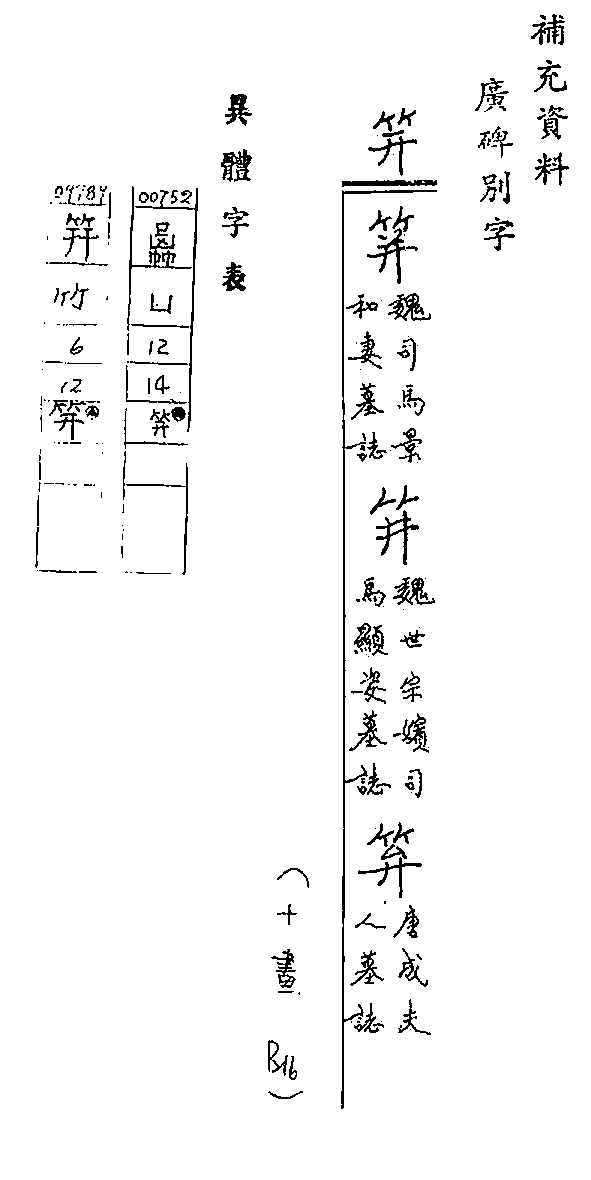 補充資料
廣碑別字
笄
筓
魏司馬景
和妻墓誌
魏世宗嬪司
馬顯姿墓誌
唐成夫
人墓誌
(十畫 B16)
異體字表
00752
凵
12
14
笄
筓
竹
6
12
笄